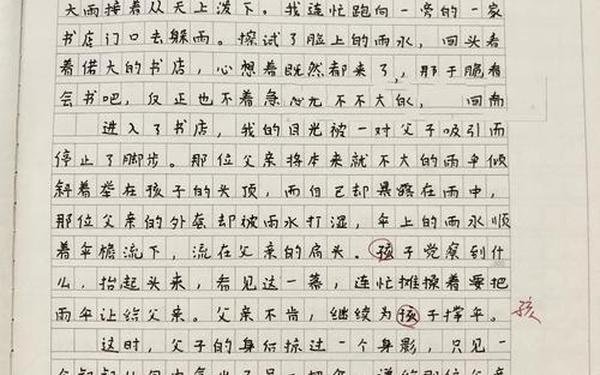 大雨接着从天上泼下。我连忙跑向一旁的一家
书店门口去躲雨。擦试了脸上的雨水，回头看
着偌大的书店，心想着既然都来了，那干脆看
会书吧，反正也不着急
进入了书店，我的目光被一对父子吸引而
停止了脚步。那位父亲将本来就不大的雨伞倾
斜着举在孩子的头顶，而自己却暴露在雨中，
那位父亲的外套却被雨水打湿，伞上的雨水顺
着伞檐流下，流在父亲的肩头。孩子觉察到什
么，抬起头来，看见这一幕，连忙推搡着要把
雨伞让给父亲。父亲不肯，继续为孩子撑伞。
孩
这时，父子的身后掠过一个身影，只见一